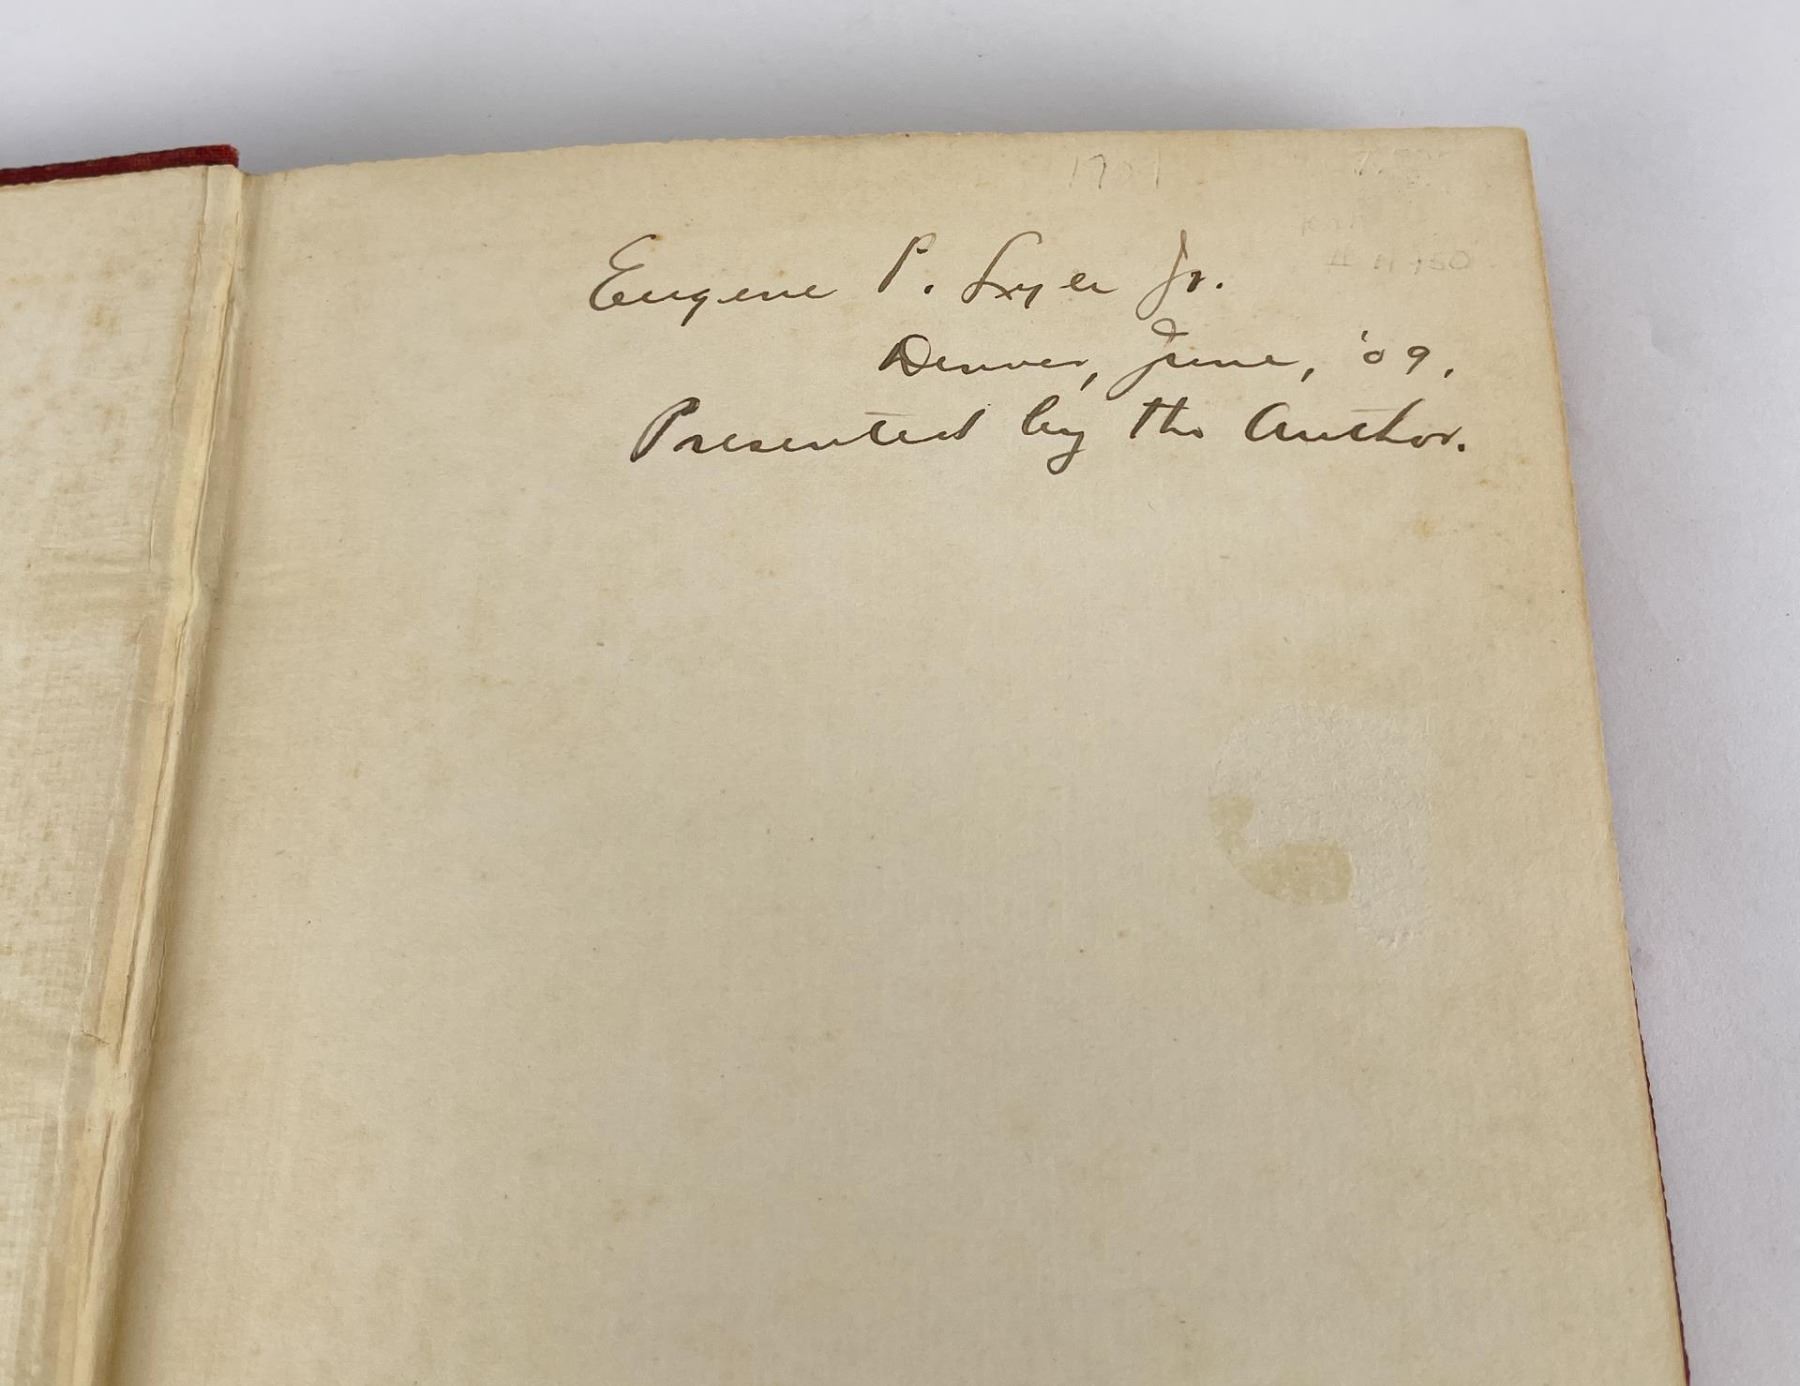 Eugene P. Lyle Jr.
Denver, June, '09.
Presented by the Author.